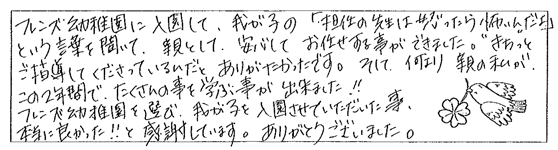 フレンズ幼稚園に入園して、我が子の「担任の先生は女がったら怖いんだよ」
という言葉を聞いて、親として、安心してお任せする事ができました。"きちっと
ご指導してくださっているんだと、ありがたかったです。そして、何より親の私が、
この2年間で、たくさんの事を学ぶ事が出来ました!!
フレンズ幼稚園を選び、我が子を入園させていただいた事、
本当に良かった!!と感謝しています。ありがとうございました。